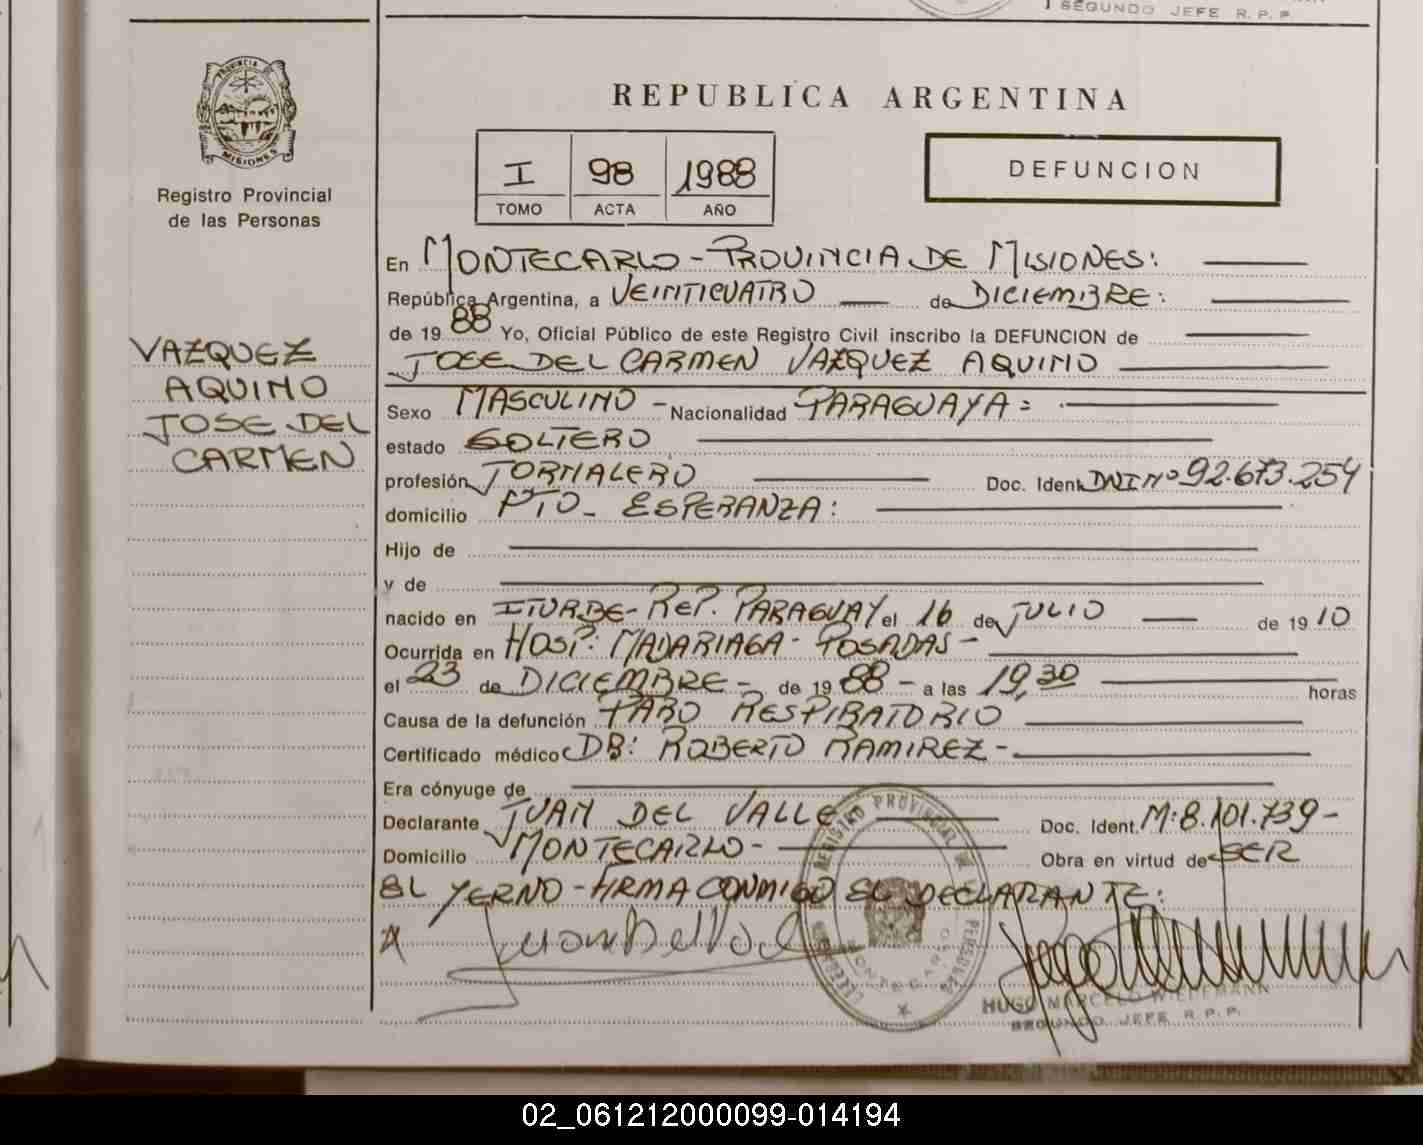 SEGUNDO JEFE R. P. P
PROVINCIA DE
MISIONES
Registro Provincial
de las Personas
VAZQUEZ
AQUINO
JOSE DEL
CARMEN
REPUBLICA ARGENTINA
I 98 1988
TOMO ACTA AÑO
DEFUNCION
En MONTECARLO - PROVINCIA DE MISIONES:
República Argentina, a VEINTICUATRO de DICIEMBRE:
de 1988 Yo, Oficial Público de este Registro Civil inscribo la DEFUNCION de
JOSE DEL CARMEN VAZQUEZ AQUINO
Sexo MASCULINO - Nacionalidad PARAGUAYA:
estado SOLTERO
profesión JORNALERO Doc. Ident. DNI Nº 92.673.254
domicilio PTO- ESPERANZA:
Hijo de
y de
nacido en ITURBE- REP. PARAGUAY el 16 de JULIO de 1910
Ocurrida en HOSP. MADARIAGA - POSADAS -
el 23 de DICIEMBRE - de 1988 - a las 19,30 horas
Causa de la defunción PARO RESPIRATORIO
Certificado médico DR: ROBERTO RAMIREZ -
Era cónyuge de
Declarante JUAN DEL VALLE Doc. Ident. M: 8.101.739-
Domicilio MONTECARLO- Obra en virtud de SER
EL YERNO - FIRMA CONMIGO EL DECLARANTE:
REGISTRO PROVINCIAL DE LAS PERSONAS
MONTECARLO
HUGO MARCELO WIEDEMANN
SEGUNDO JEFE R. P. P.
02_061212000099-014194